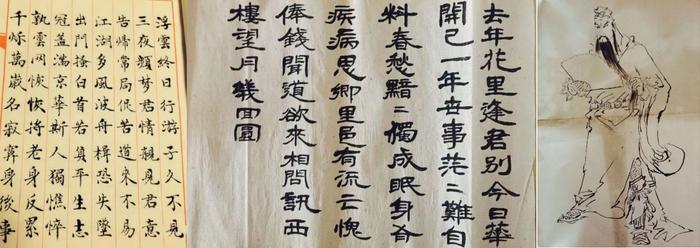 浮雲終日行游子久不見
三夜頻梦君情親見君意
告歸常局促苦道來不易
江湖多風波舟楫恐失墜
出門搔白首若負平生志
冠蓋滿京華斯人獨憔悴
孰雲网恢恢將老身反累
千秌萬歲名寂寞身後事
去年花里逢君別今日華
開已一年世事茫二難自
料春愁黯二獨成眠身有
疾病思鄉里邑有流亡愧
俸錢聞道欲來相問訊西
樓望月幾回圓